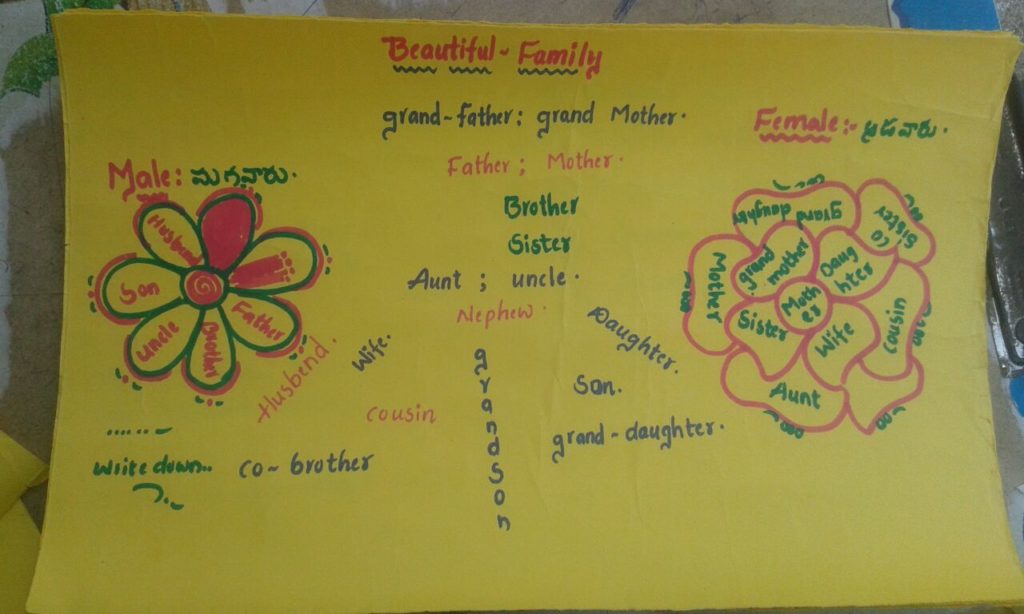 Beautiful- Family
grand-father: grand Mother.
Female:- ఆడవారు.
Father ; Mother.
Male: మగవారు.
Brother
Sister
Aunt ; uncle.
Nephew.
Husbend
Son
uncle
Brother
Father
Husbend.
Wife.
Daughter.
Son.
cousin
grandson
grand-daughter.
Write down..
co- brother
grand daughter
Co Sister
Mother
grand mother
Daughter
Mother
Sister
Wife
cousin
Aunt